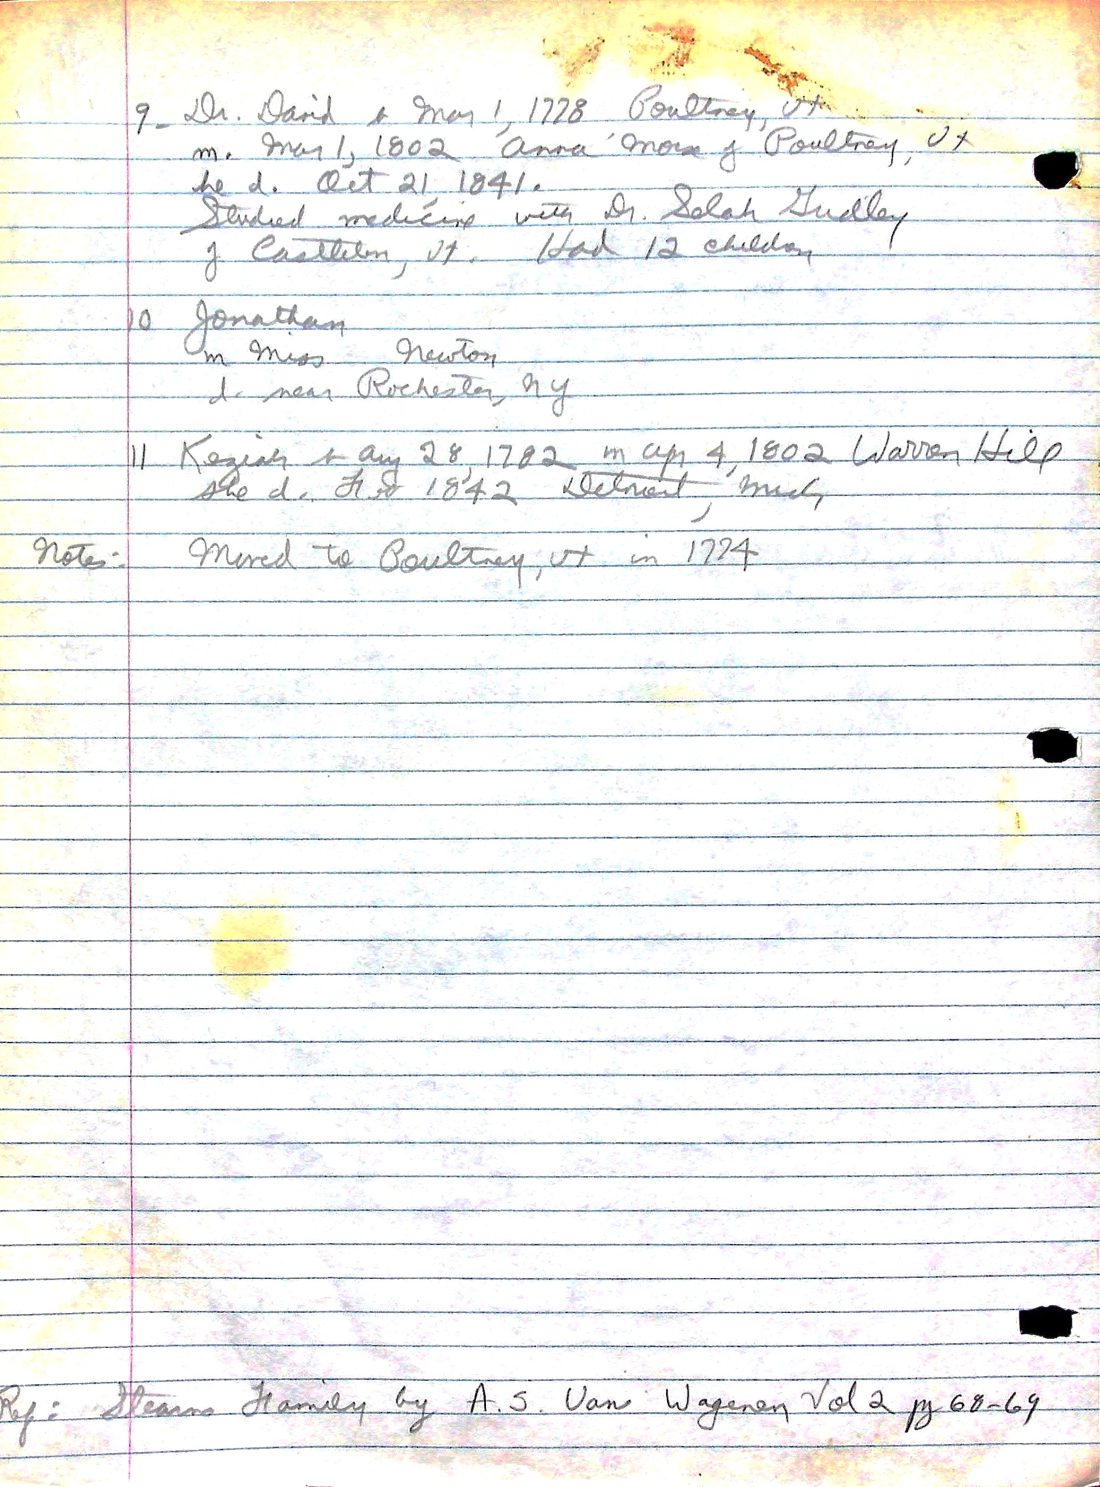 9- Dr. David b Mar 1, 1778 Poultney, Vt
m. Mar 1, 1802 Anna Morse of Poultney, Vt
he d. Oct 21, 1841.
Studied medicine with Dr. Selah Gridley
of Castleton, Vt. Had 12 children
10 Jonathan
m Miss Newton
d. near Rochester, NY
11 Keziah b Aug 28, 1782 m Apr 4, 1802 Warren Hill
she d. Feb 1842 Detroit, Mich,
Notes:- Moved to Poultney, Vt in 1774
Ref: Stearns Family by A.S. Van Wagenen Vol 2 pg 68-69